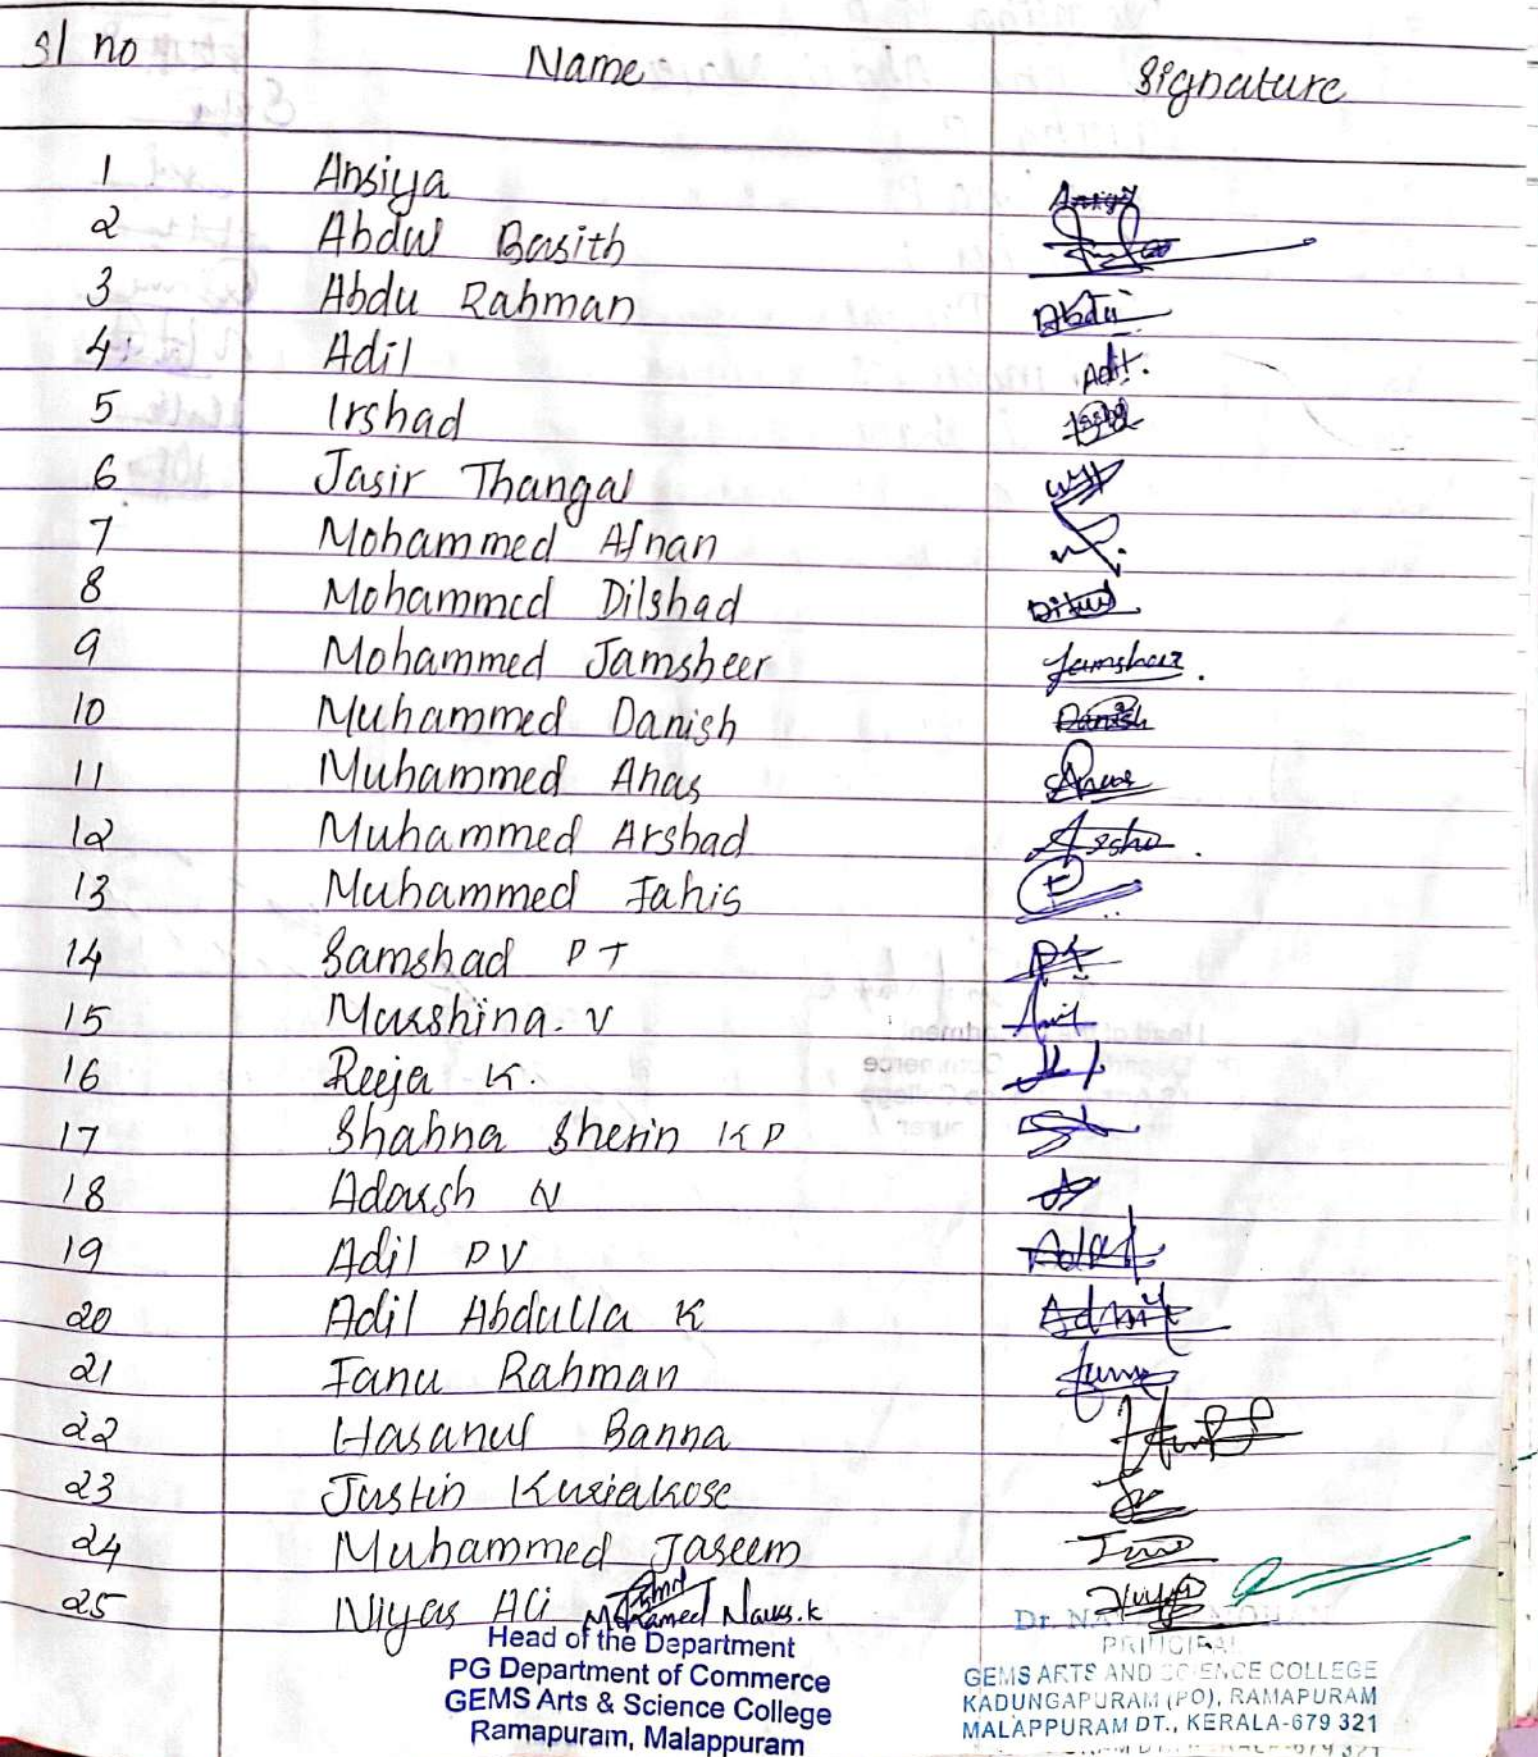 Sl no Name Signature
1 Ansiya
2 Abdul Basith
3 Abdu Rahman Abdu
4 Adil Adil.
5 Irshad
6 Jasir Thangal
7 Mohammed Afnan
8 Mohammed Dilshad
9 Mohammed Jamsheer Jamsheer.
10 Muhammed Danish Danish
11 Muhammed Anas Anas
12 Muhammed Arshad
13 Muhammed Fahis
14 Samshad P T PT
15 Murshina. V
16 Reeja K.
17 Shahna Sherin K P
18 Adarsh N
19 Adil P V
20 Adil Abdulla K
21 Fanu Rahman
22 Hasanul Banna
23 Justin Kuriakose
24 Muhammed Jaseem
25 Niyas Ali
Mohamed Naws.k
Head of the Department
PG Department of Commerce
GEMS Arts & Science College
Ramapuram, Malappuram
Dr. NA
PRINCIPAL
GEMS ARTS AND SCIENCE COLLEGE
KADUNGAPURAM (PO), RAMAPURAM
MALAPPURAM DT., KERALA-679 321